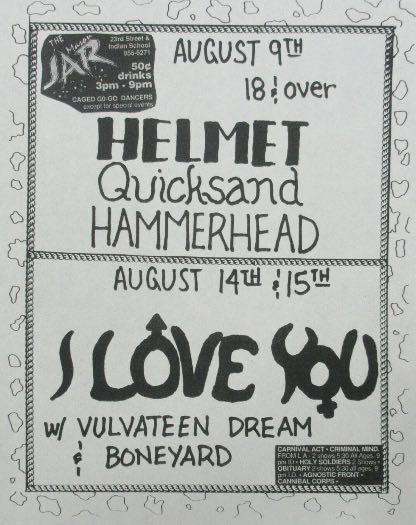 THE Mason JAR
23rd Street & Indian School
956-6271
50¢ drinks
3pm - 9pm
CAGED GO-GO DANCERS
except for special events
AUGUST 9TH
18 & over
HELMET
Quicksand
HAMMERHEAD
AUGUST 14TH & 15TH
I LOVE YOU
w/ VULVATEEN DREAM
& BONEYARD
CARNIVAL ACT • CRIMINAL MIND,
FROM LA - 2 shows 5:30 All Ages, 9
pm ID • HOLY SOLDIERS 2 Shows •
OBITUARY 2 shows 5:30 all ages, 9
pm I.D. • AGNOSTIC FRONT •
CANNIBAL CORPS •